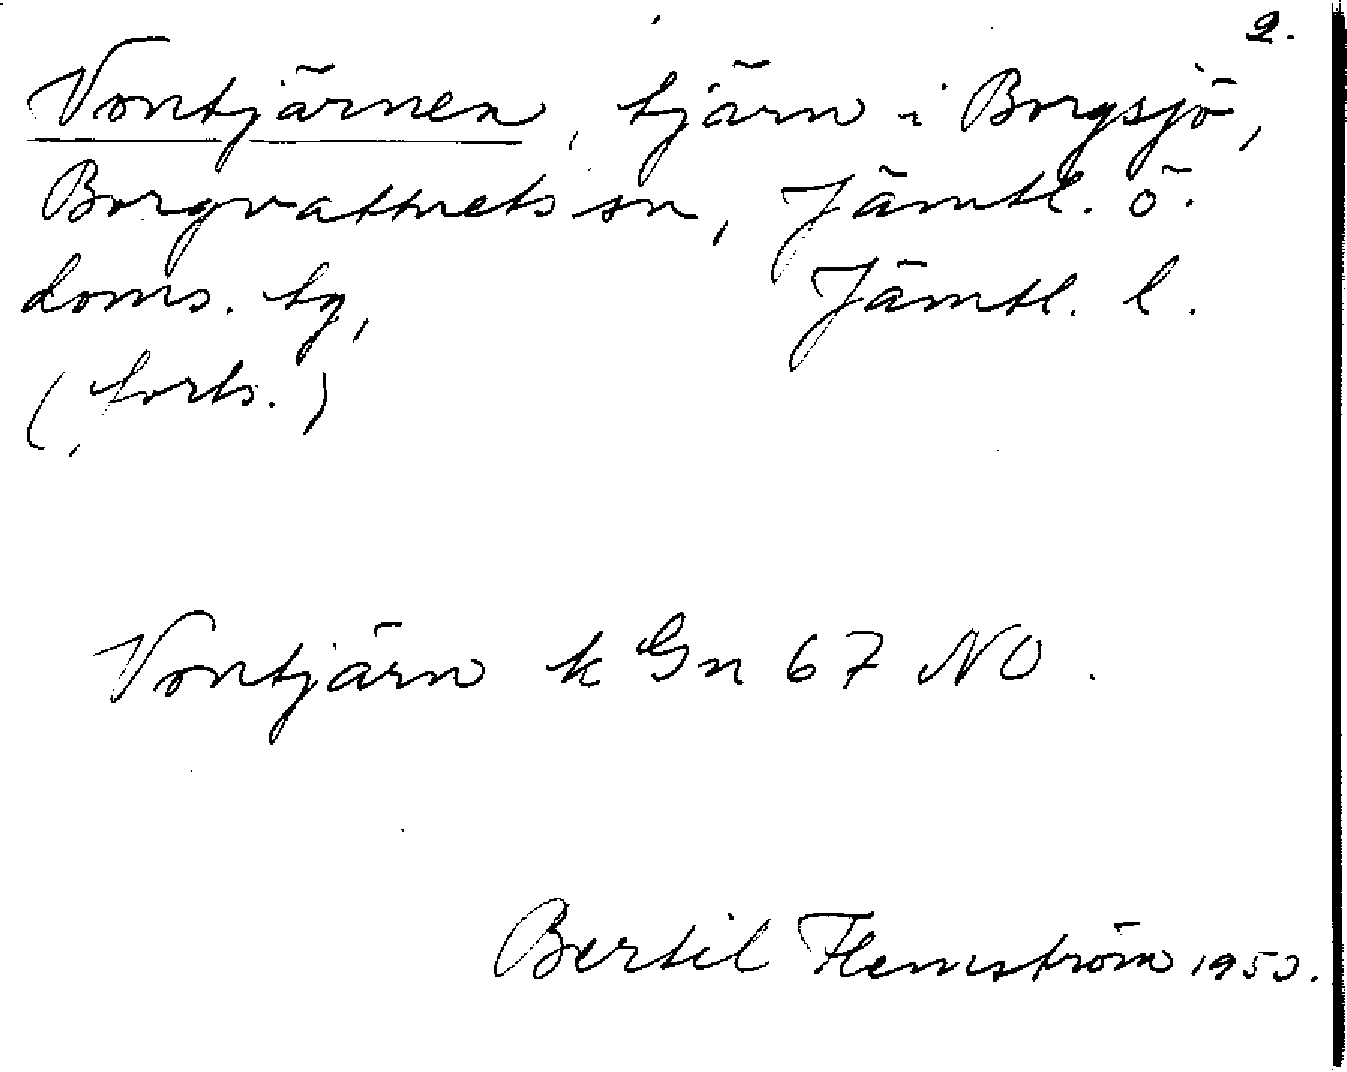 2.
Vontjärnen, tjärn i Borgsjö,
Borgvattnets sn, Jämtl. ö.
doms. tg, Jämtl. l.
(forts.)
Vontjärn k Gn 67 NO.
Bertil Flemström 1950.